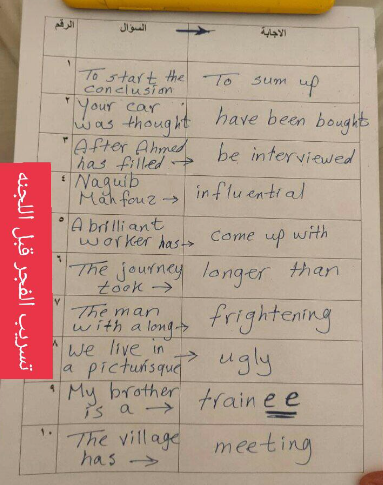 الرقم السؤال الاجابة
١ To start the conclusion To sum up
٢ Your car was thought have been bought
٣ After Ahmed has filled → be interviewed
٤ Naguib Mahfouz → influential
٥ A brilliant worker has → come up with
٦ The journey took → longer than
٧ The man with a long → frightening
٨ We live in a picturisque → ugly
٩ My brother is a → trainee
١٠ The village has → meeting
تسريب الفجر قبل اللجنه